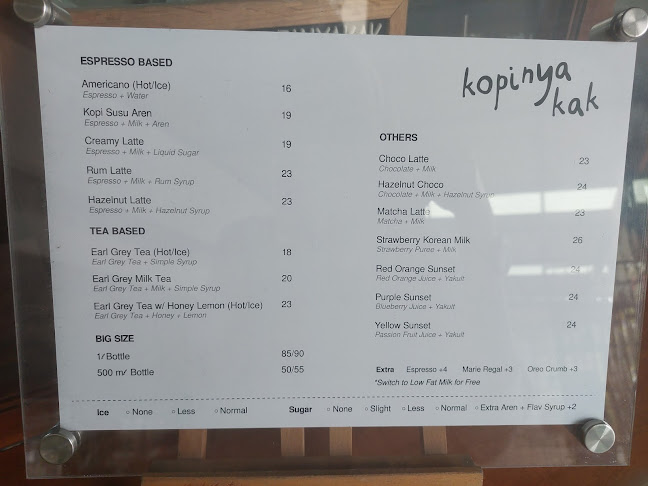 ESPRESSO BASED
Americano (Hot/Ice) 16
Espresso + Water
Kopi Susu Aren 19
Espresso + Milk + Aren
Creamy Latte 19
Espresso + Milk + Liquid Sugar
Rum Latte 23
Espresso + Milk + Rum Syrup
Hazelnut Latte 23
Espresso + Milk + Hazelnut Syrup
TEA BASED
Earl Grey Tea (Hot/Ice) 18
Earl Grey Tea + Simple Syrup
Earl Grey Milk Tea 20
Earl Grey Tea + Milk + Simple Syrup
Earl Grey Tea w/ Honey Lemon (Hot/Ice) 23
Earl Grey Tea + Honey + Lemon
BIG SIZE
1/Bottle 85/90
500 ml Bottle 50/55
kopinya
kak
OTHERS
Choco Latte 23
Chocolate + Milk
Hazelnut Choco 24
Chocolate + Milk + Hazelnut Syrup
Matcha Latte 23
Matcha + Milk
Strawberry Korean Milk 26
Strawberry Puree + Milk
Red Orange Sunset 24
Red Orange Juice + Yakult
Purple Sunset 24
Blueberry Juice + Yakult
Yellow Sunset 24
Passion Fruit Juice + Yakult
Extra Espresso +4 Marie Regal +3 Oreo Crumb +3
*Switch to Low Fat Milk for Free
Ice None Less Normal Sugar None Slight Less Normal Extra Aren + Flav Syrup +2